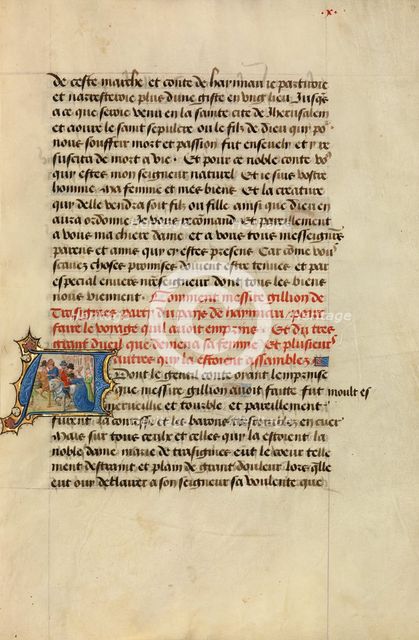 .x.
de ceste marche et conte de haynnau je partiroie
et narresteroie plus dune giste en ung lieu Jusqs
a ce que seroie venu en la sainte cite de Jherusalem
et aoure le saint sepulcre ou le filz de dieu qui po
nous souffrir mort et passion fut ensevely et re
suscita de mort a vie. Et pour ce noble conte vo9
quy estes mon seigneur naturel Et je suis vostre
homme Ma femme et mes biens Et la creature
quy delle vendra soit filz ou fille ainsi que dieu en
aura ordonne Je vous recomand Et pareillement
a vous ma chiere dame et a vous tous messeigneurs
parens et amis quy cy estes presens Car come vo9
scavez choses promises doivent estre tenues et par
especial envers nreseigneur dont tous les biens
nous viennent. Comment messire gillion de
Trasignies party du pays de haynnau pour
faire le voyage quil avoit emprins Et du tres
grant dueil que demena sa femme Et plusieurs
autres quy la estoient assamblez
Dont le gentil conte oyant lemprinse
que messire gillion avoit faitte fut moult es
merveillie et trouble et pareillement
furent la contesse et les barons tresdolans en cuer
Mais sur tous ceulx et celles quy la estoient la
noble dame marie de trasignies eut le coeur telle
ment destraint et plain de grant douleur lors qlle
eut ouy declairer a son seigneur sa voulente que